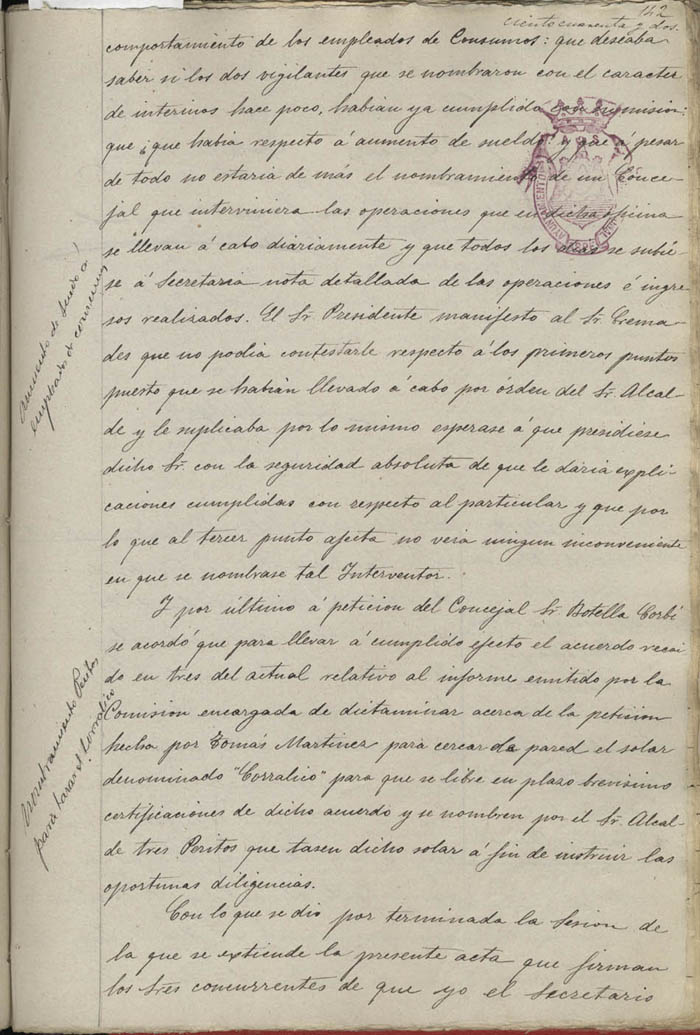 142
ciento cuarenta y dos.
comportamiento de los empleados de Consumos: que deseaba
saber si los dos vigilantes que se nombraron con el caracter
de interinos hace poco, habian ya cumplido comision:
que ¿que habia respecto á aumento de sueldo? y que á pesar
de todo no estaria de más el nombramiento de un Conce-
jal que interviniera las operaciones que en dicha oficina
se llevan á cabo diariamente y que todos los dias se subie-
se á Secretaria nota detallada de las operaciones é ingre-
sos realizados. El Sr Presidente manifesto al Sr Crema-
des que no podia contestarle respecto á los primeros puntos
puesto que se habian llevado á cabo por órden del Sr Alcal-
de y le suplicaba por lo mismo esperase á que presidiese
dicho Sr. con la seguridad absoluta de que le daria expli-
caciones cumplidas con respecto al particular y que por
lo que al tercer punto afecta no veia ningun inconveniente
en que se nombrase tal Interventor.
Y por último á peticion del Concejal Sr Botella Corbí
se acordó que para llevar á cumplido efecto el acuerdo recai-
do en tres del actual relativo al informe emitido por la
Comision encargada de dictaminar acerca de la peticion
hecha por Tomás Martinez para cercar de pared el solar
denominado "Corralico" para que se libre en plazo brevisimo
certificaciones de dicho acuerdo y se nombren por el Sr Alcal-
de tres Peritos que tasen dicho solar á fin de instruir las
oportunas diligencias.
Con lo que se dió por terminada la Sesion de
la que se extiende la presente acta que firman
los Sres concurrentes de que yo el Secretario
Aumento de sueldo á
empleados de consumos
Nombramiento Peritos
para tasar el Corralico
AYUNTAMIENTO